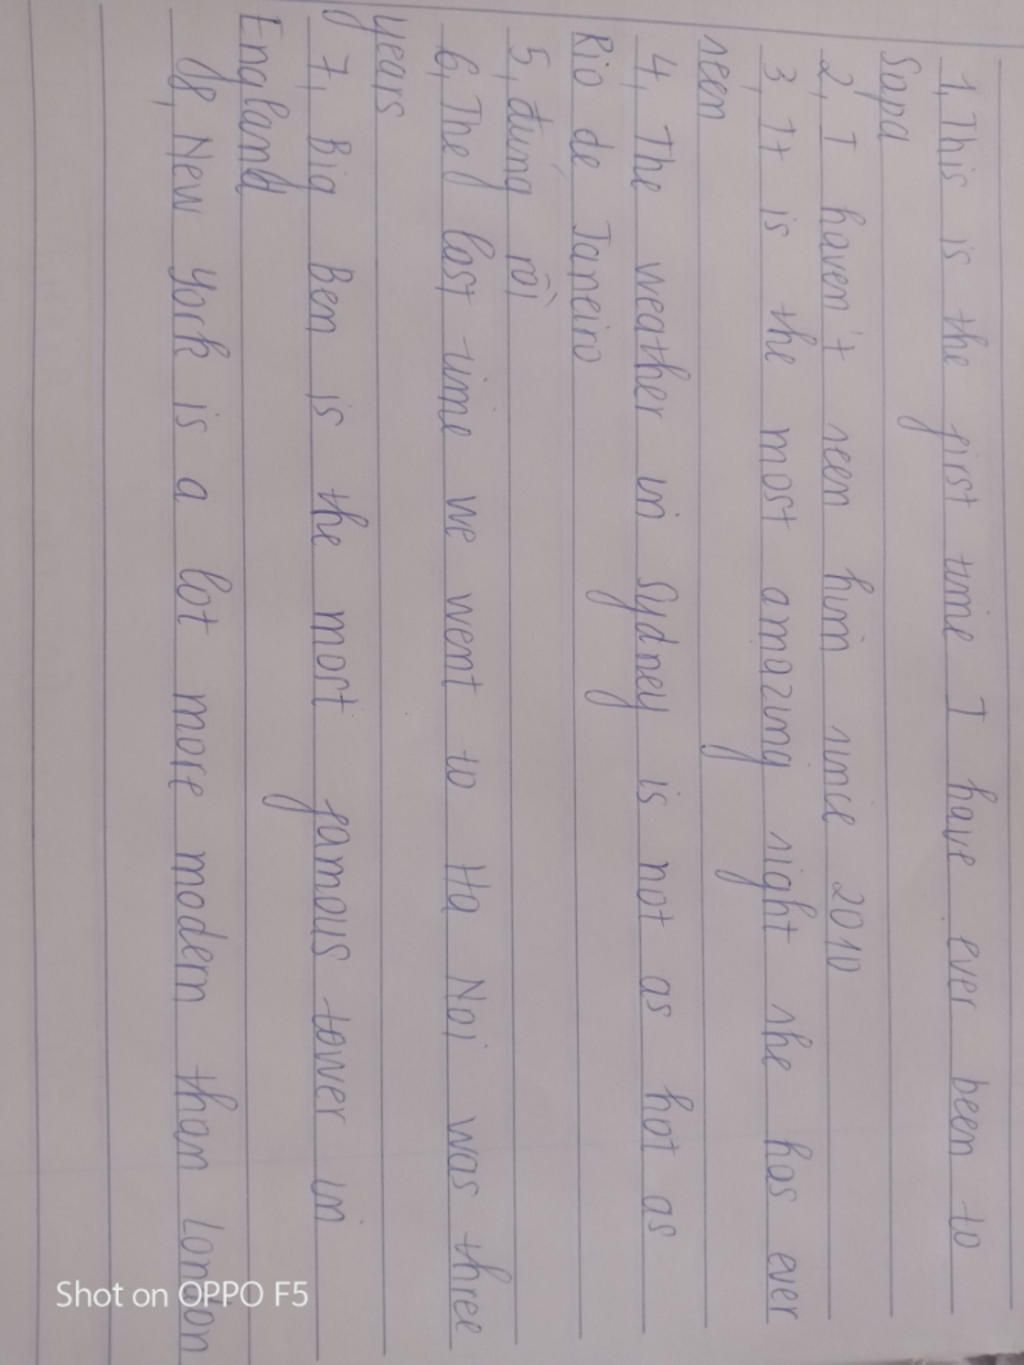 1, This is the first time I have ever been to
Sapa
2, I haven't seen him since 2010
3, It is the most amazing sight she has ever
seen
4, The weather in Sydney is not as hot as
Rio de Janeiro
5, đúng rồi
6, The last time we went to Ha Noi was three
years
7, Big Ben is the most famous tower in
England
8, New York is a lot more modern than London
Shot on OPPO F5